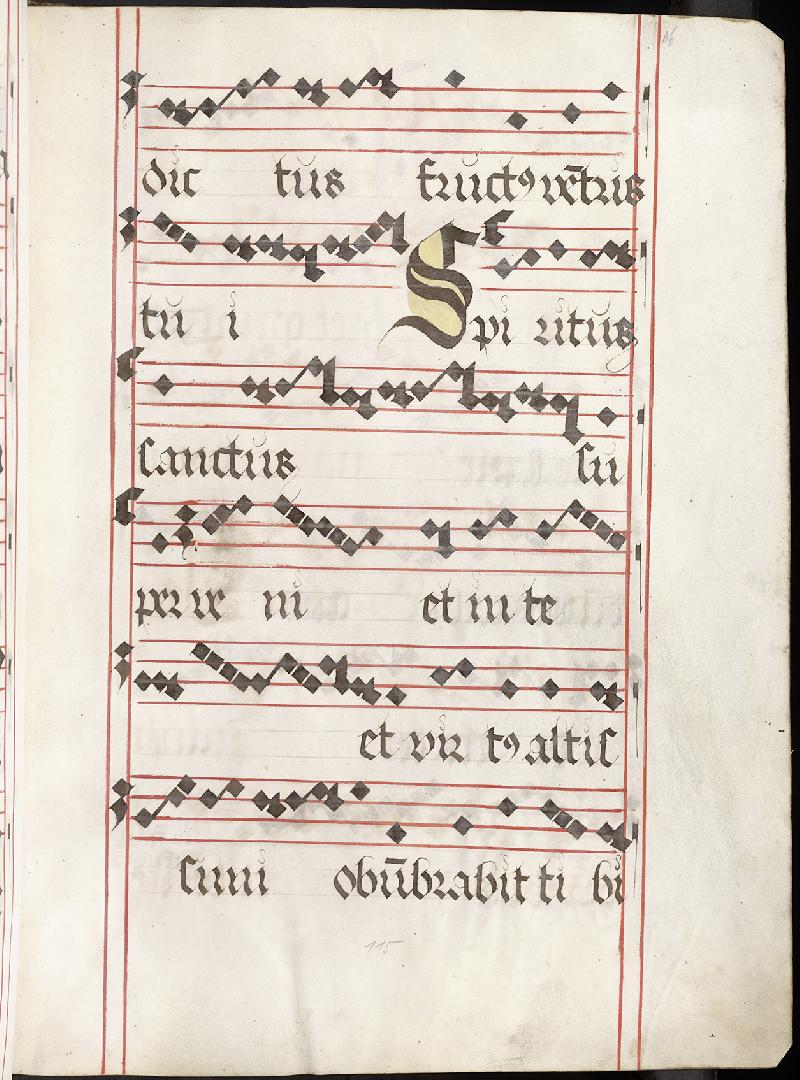 dic tus fruct⁹ vētris
tu i Spi ritus
sanctus su
per ve ni et in te
et vir t⁹ altis
simi obūbrabit ti bi
115